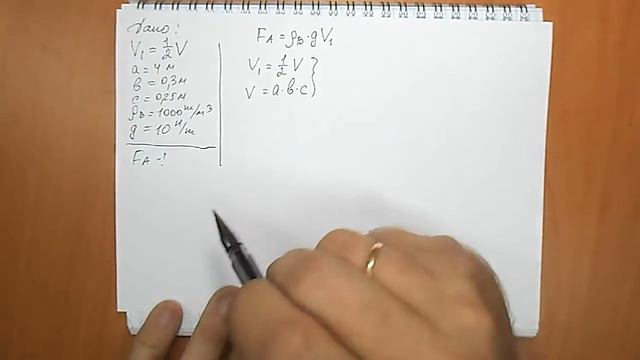 Дано:
V₁ = 1/2 V
a = 4 м
в = 0,3 м
c = 0,25 м
ρв = 1000 кг/м³
g = 10 Н/кг
FA - ?
FA = ρв · g V₁
V₁ = 1/2 V
V = a · в · c